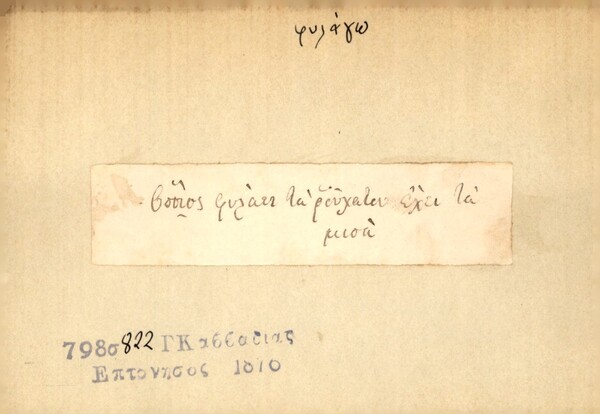 φυλάγω
Ὅποιος φυλάει τὰ ῥοῦχάτου ἔχει τὰ
μισὰ
798σ822 ΓΚαββαδιας
Επτανησος 1876